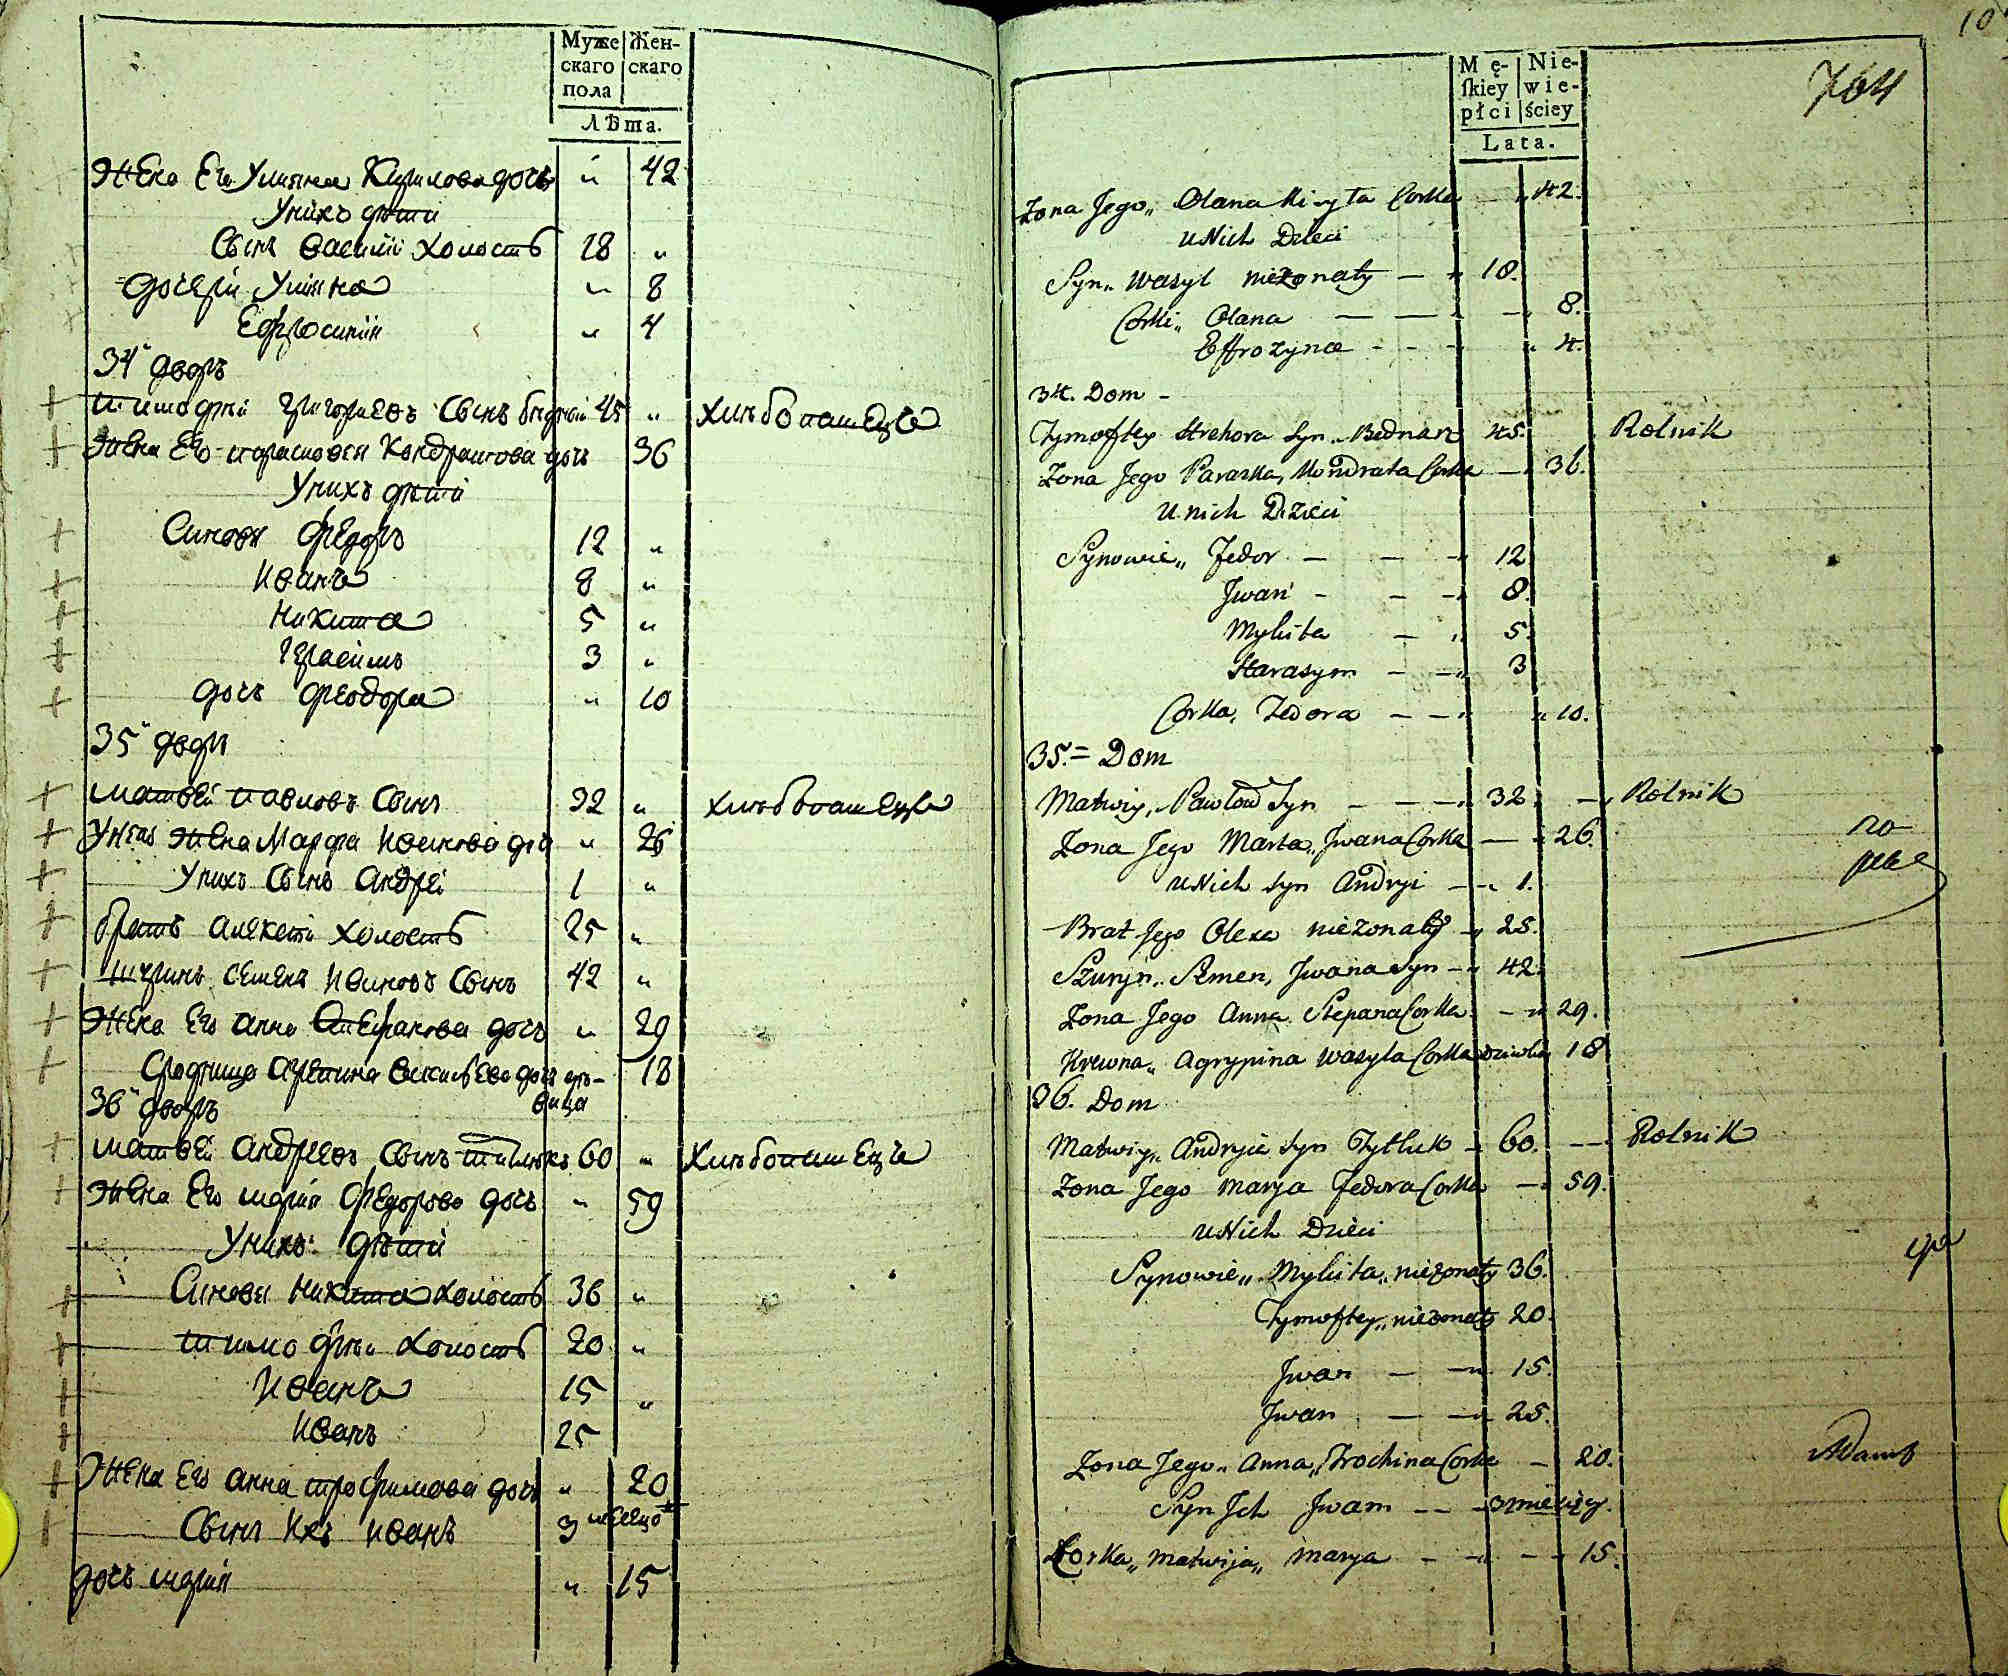 Муже
скаго
пола
Жен-
скаго
Лѣта.
Жена Его Улияна Кирилова дочь " 42
У нихъ дѣти
Сынъ Василий холостъ 18 "
дочери Улияна " 8
Ефросиния " 4
34й дворъ
Тимофѣй Григорьевъ Сынъ Бѣднай 45 " хлѣбопашецъ
Жена Его парасковея Кондратова дочь 36
У нихъ дѣти
Синовя Федоръ 12 "
Иванъ 8 "
Никита 5 "
Герасимъ 3 "
дочь Феодора " 10
35й дворъ
Матвей павловъ Сынъ 32 " хлѣбопашецъ
У него жена Марфа Иванова доч " 26
У нихъ Сынъ Андрей 1 "
братъ алексей холостъ 25 "
шуринъ семенъ Ивановъ Сынъ 42 "
Жена Его анна Степанова дочь " 29
Сродница агрепина Василева дочь дѣ- 18
вица
36й дворъ
Матвей Андреевъ Сынъ титлюкъ 60 " Хлѣбопашецъ
Жена Его мария Федорова дочь " 59
У нихъ дѣти
Синовя Никита холостъ 36 "
тимофѣй холостъ 20 "
Иванъ 15 "
Иванъ 25
Жена Его анна трофимова дочь " 20
Сынъ Ихъ иванъ 3 месеца
дочь мария " 15
10
Mę-
skiey
płci
Nie-
wie-
ściey
Lata.
764
Zona Jego„ Olana Kiryła Corka " 42.
u Nich Dzieci
Syn„ Wasyl niezonaty — " 18.
Corki„ Olana — — — 8.
Effrozyna - - - " 4.
34. Dom -
Tymoftey Hrehora Syn„ Bednarz 45. Rolnik
Zona Jego Paraska, Kondrata Corka — 36.
u nich Dzieci
Synowie„ Fedor — — " 12
Jwan - - " 8.
Mykita — " 5.
Harasym - — 3
Corka, Fedora — — " " 10.
35.= Dom
Matwiy„ Pawłow Syn — — — 32. — Rolnik
Zona Jego Marta„ Jwana Corka — " 26.
u Nich Syn Andryi — " 1.
Brat Jego Olexa niezonaty " 25.
Szuryn„ Semen, Jwana Syn — " 42.
Zona Jego Anna Stepana Corka — " 29.
Krewna„ Agrypina Wasyla Corka dziewka 18
36. Dom
Matwiy„ Andryia Syn Tytluk — 60. — Rolnik
Zona Jego Marya Fedora Corka — 59.
u Nich Dzieci
Synowie„ Mykita„ niezonaty 36.
Tymoftey„ niezonaty 20.
Jwan — — " 15.
Jwan — — " 25.
Zona Jego„ Anna„ Trochima Corka — 20.
Syn Jch Jwan — — 3 miesięcy.
Corka„ Matwija„ Marya — — — 15.